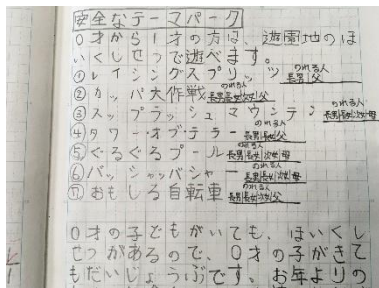 安全なテーマパーク
0才から1才の方は、遊園地のほ
いくしせつで遊べます。
①レイシングスプリッツ のれる人 長男|父
②カッパ大作戦 のれる人 長男|長女|次女|父
③スップラッシュマウンテン のれる人 長男|父
④タワー・オブ・テラー のれる人 長男|長女|父
⑤ぐるぐるプール のれる人 長男|長女|次女|母
⑥バッシャバシャー のれる人 長男|長女|次女|母
⑦おもしろ自転車 のれる人 長男|長女|次女|父
0才の子どもがいても、ほいくし
せつがあるので、0才の子がきて
もだいじょうぶです。お年よりの